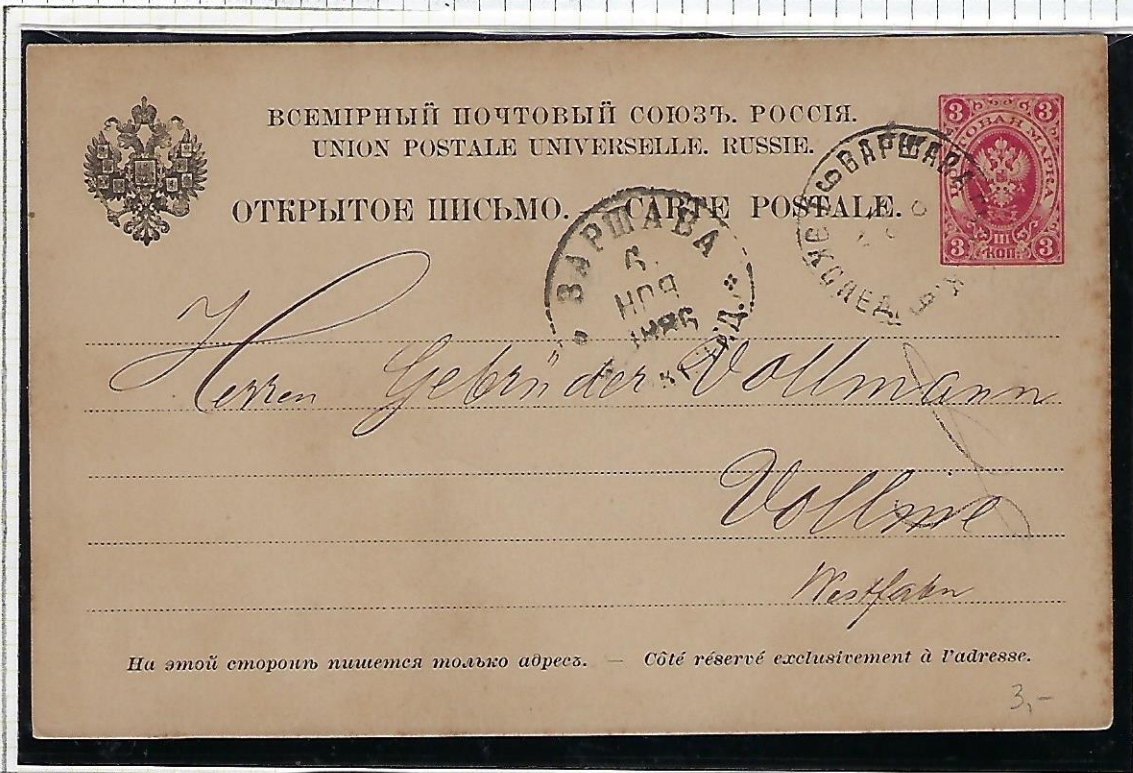 ВСЕМІРНЫЙ ПОЧТОВЫЙ СОЮЗЪ. РОССІЯ.
UNION POSTALE UNIVERSELLE. RUSSIE.
ОТКРЫТОЕ ПИСЬМО. CARTE POSTALE.
3 3
МАРКА
3 3
КОП.
ВАРШАВА
НОЯ
1886
ВАРШАВА
Herren Gebrüder Vollmann
Vollme
Westfalen
На этой сторонѣ пишется только адресъ. — Côté réservé exclusivement à l'adresse.
3,-